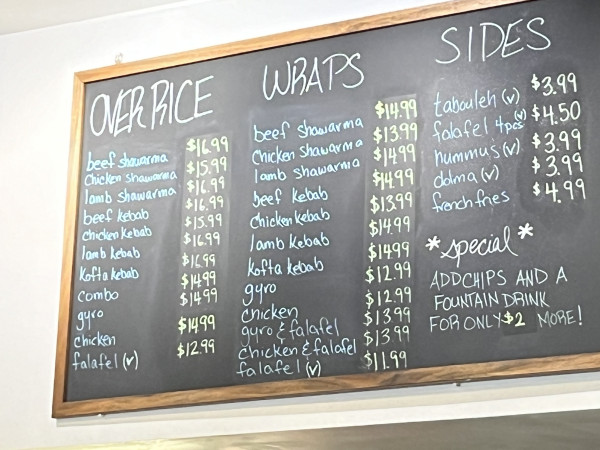 OVER RICE
beef shawarma $16.99
Chicken shawarma $15.99
lamb shawarma $16.99
beef kebab $16.99
chicken kebab $15.99
lamb kebab $16.99
kofta kebab $16.99
combo $14.99
gyro $14.99
chicken $14.99
falafel (v) $12.99
WRAPS
beef shawarma $14.99
Chicken shawarma $13.99
lamb shawarma $14.99
beef kebab $14.99
chicken kebab $13.99
lamb kebab $14.99
kofta kebab $14.99
gyro $12.99
chicken $12.99
gyro & falafel $13.99
chicken & falafel $13.99
falafel (v) $11.99
SIDES
tabouleh (v) $3.99
falafel 4pcs (v) $4.50
hummus (v) $3.99
dolma (v) $3.99
french fries $4.99
*special*
ADD CHIPS AND A
FOUNTAIN DRINK
FOR ONLY $2 MORE!